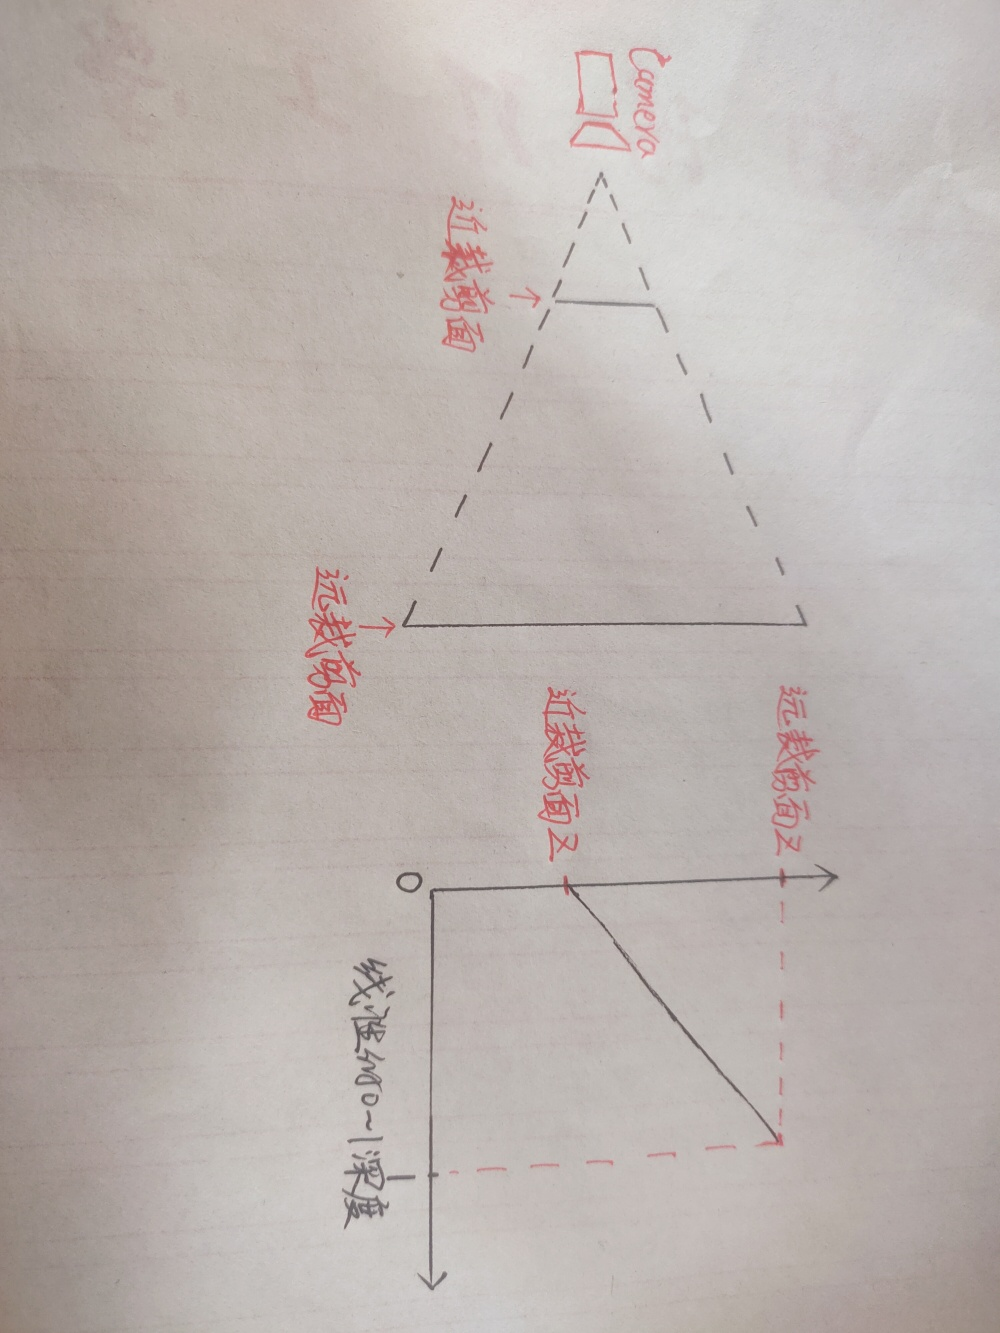 Camera
近裁剪面
↑
远裁剪面
↑
远裁剪面Z
近裁剪面Z
0
线性的0~1深度
1